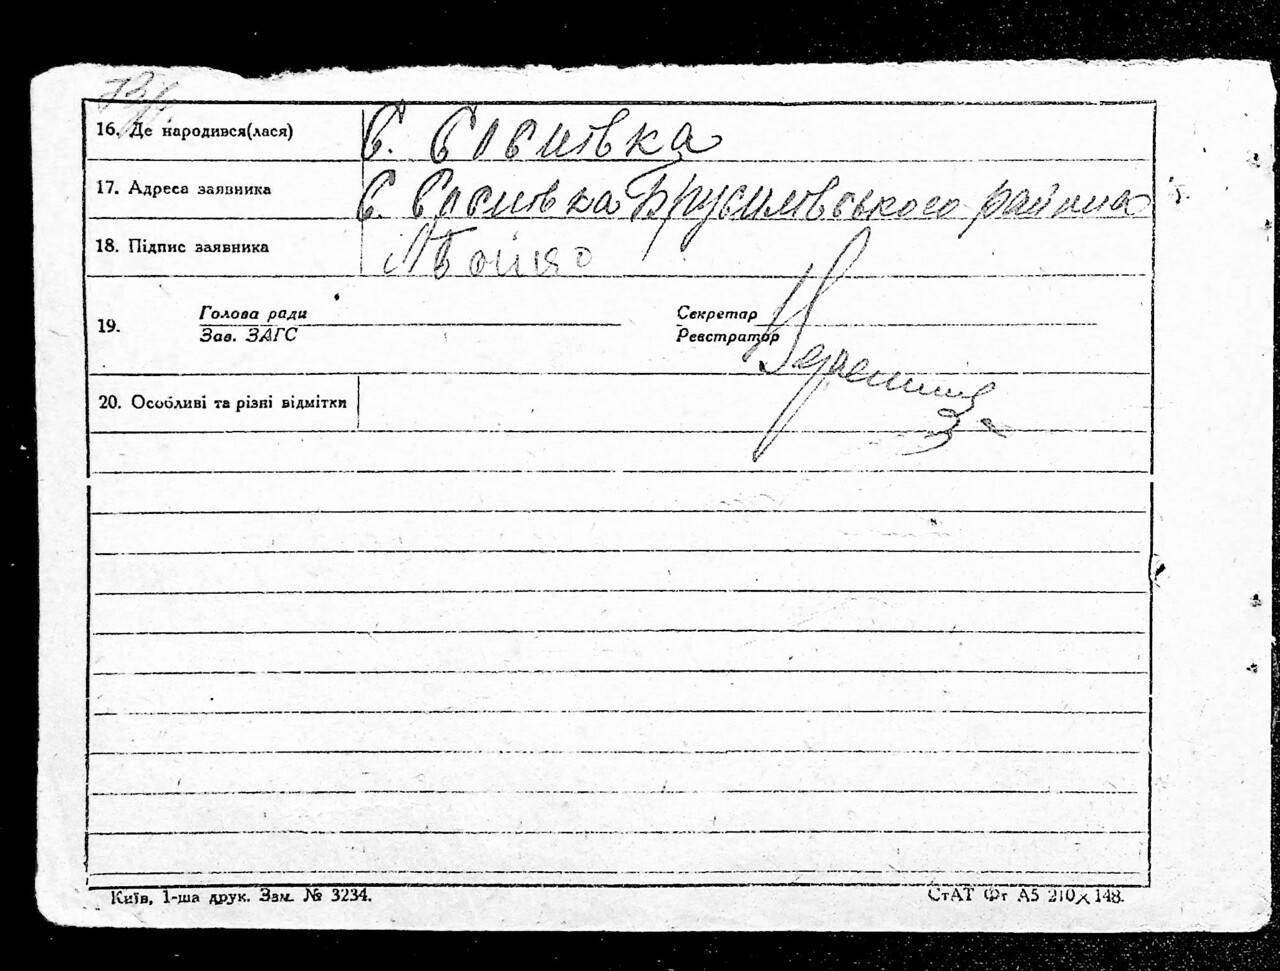 16. Де народився(лася) С. Соснівка
17. Адреса заявника С. Соснівка Брусилівського района
18. Підпис заявника Бойко
19. Голова ради Секретар
Зав. ЗАГС Реєстратор
20. Особливі та різні відмітки
Київ, 1-ша друк. Зам. № 3234. СтАТ Фт А5 210×148.